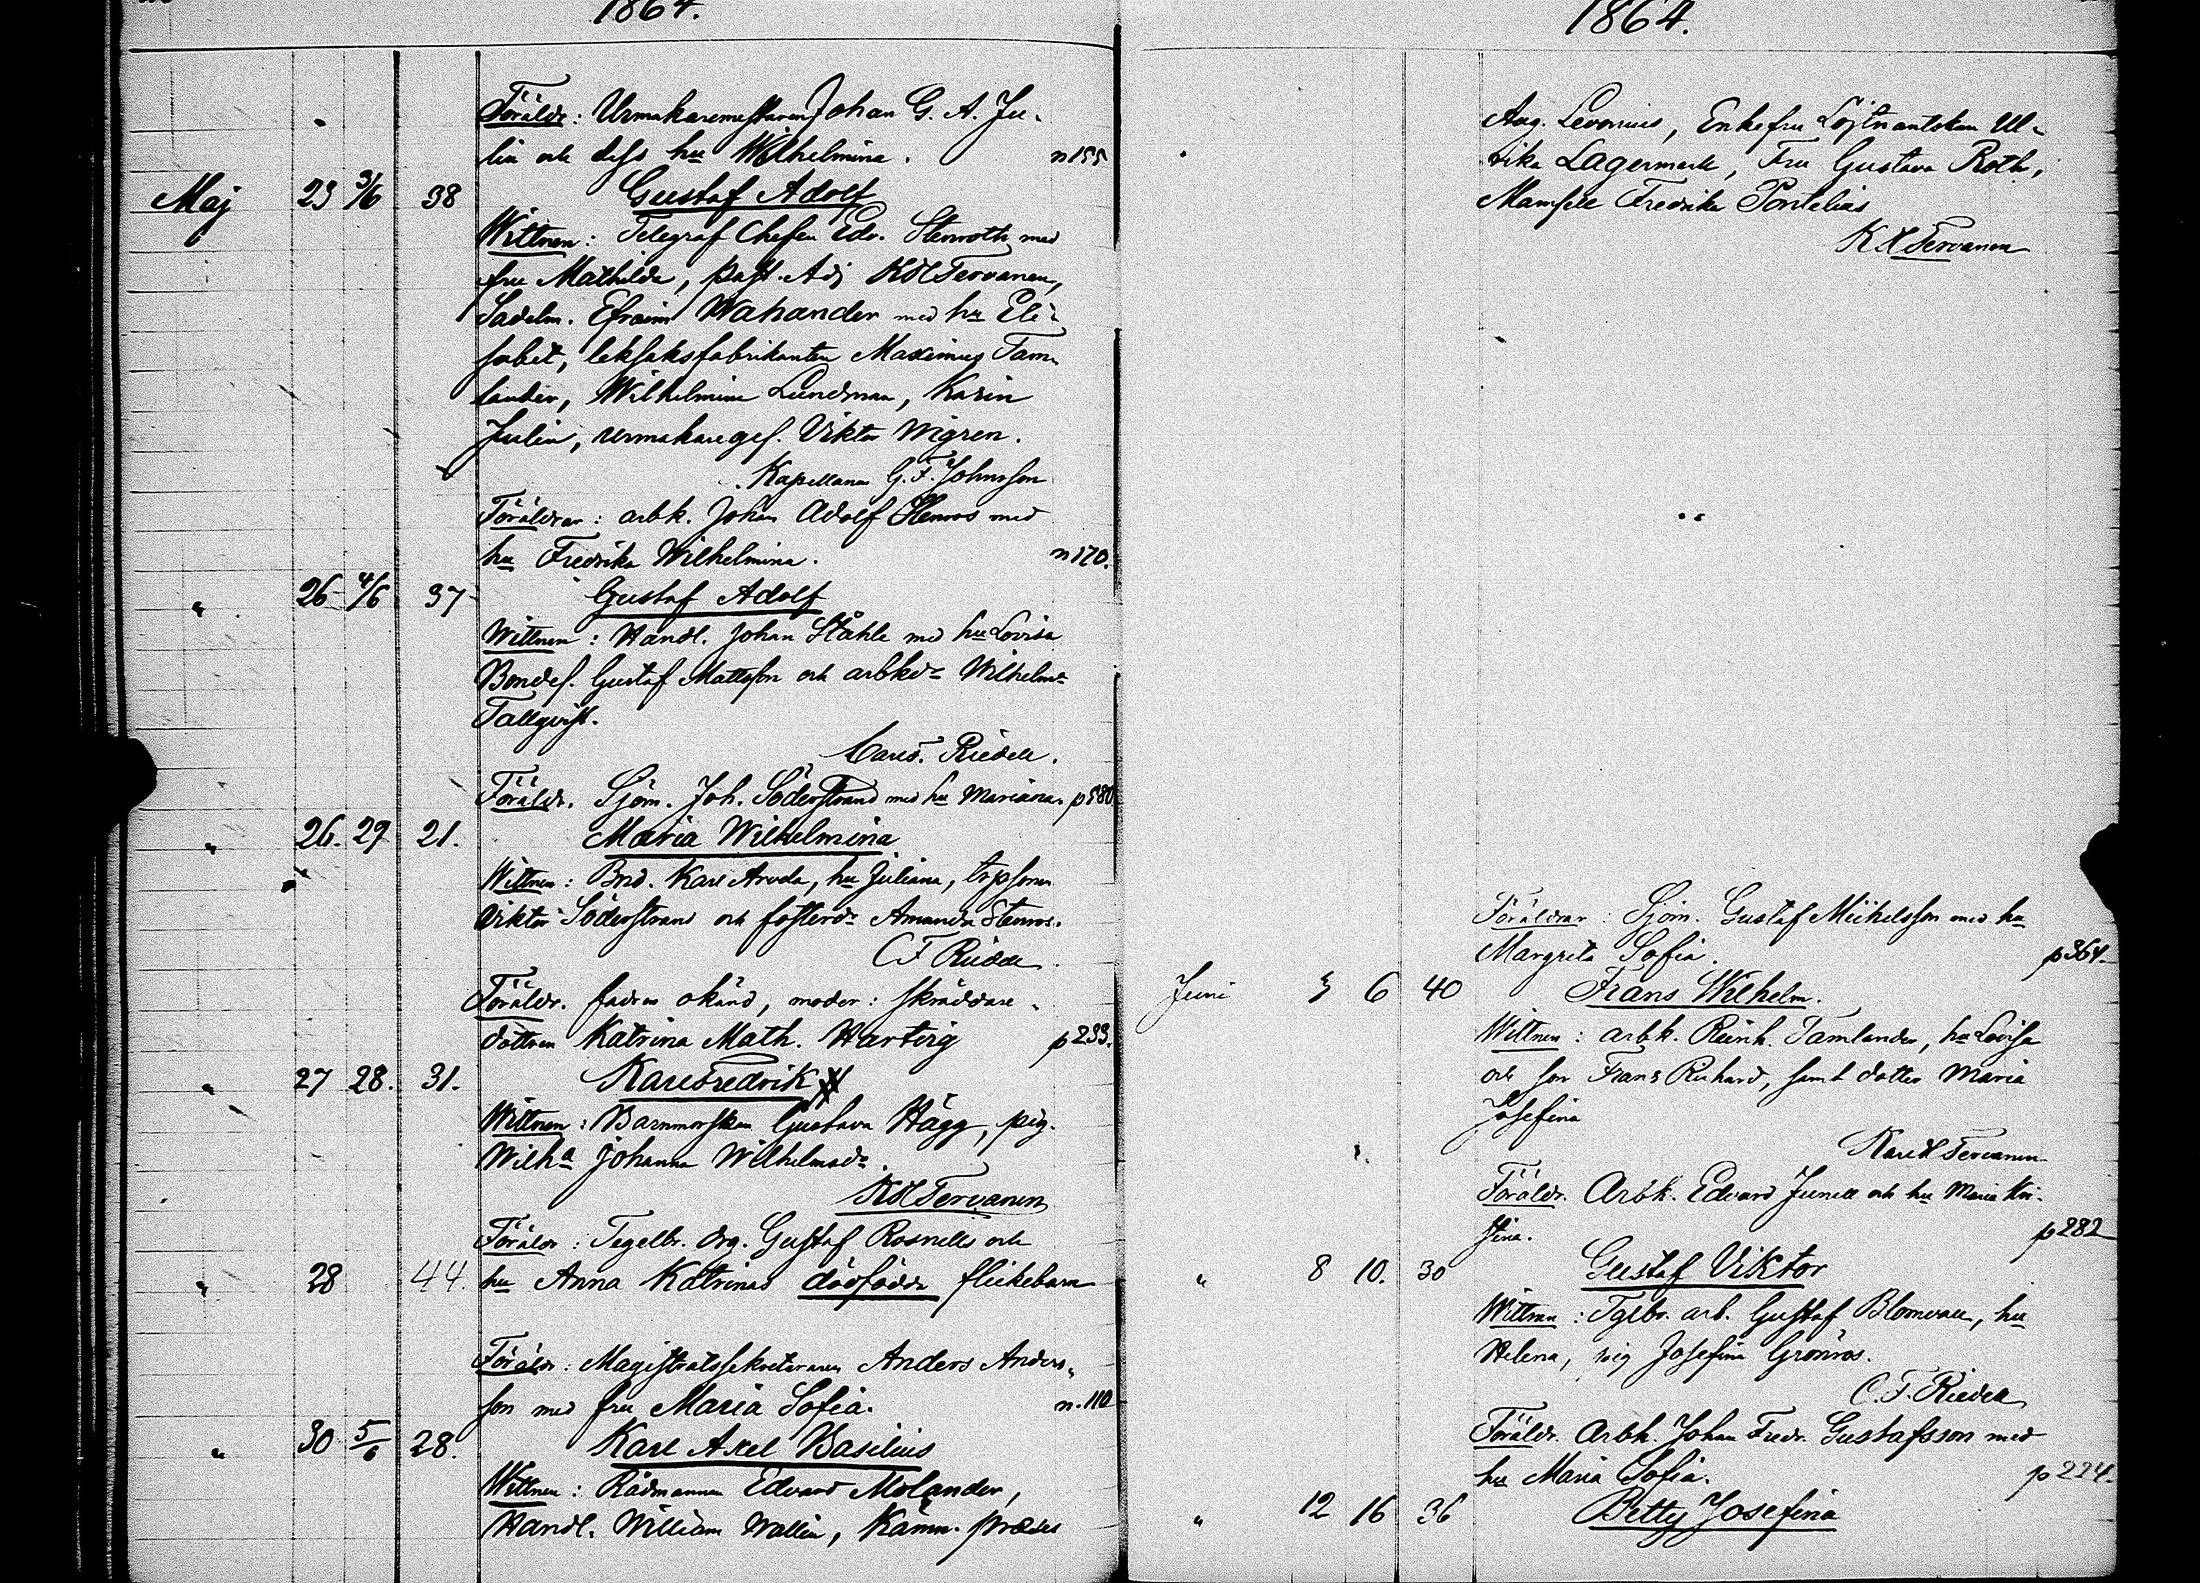 1864.
Föräldr: Urmakaremästaren Johan G. A. Ju-
lin och dess hu Wilhelmina. n155
Maj 23 3/6 38 Gustaf Adolf
Wittnen: Telegraf Chefen Edv. Stenroth med
fru Mathilda, past. Adj K H Tervanen,
Sadelm. Efraim Wahander med hu Eli-
sabet, leksaksfabrikanten Maximus Tam-
lander, Wilhelmina Lundman, Karin
Julin, urmakareges. Viktor Wigren.
Kapellanen G. F. Johnsson
Föräldrar: arbk. Johan Adolf Stenros med
hu Fredrika Wilhelmina. n170.
" 26 4/6 37 Gustaf Adolf
Wittnen: Handl. Johan Ståhle med hu Lovisa
Bondes. Gustaf Mattsson och arbkdr Wilhelma
Tallqvist.
Riedell.
Föräldr. Sjöm. Joh. Söderstrand med hu Mariana. p580
" 26. 29 21. Maria Wilhelmina
Wittnen: Bnd. Karl Arvela, hu Juliana, trpsonen
Viktor Söderstrand och fosterdr Amanda Stenros.
C F Riedell.
Föräldr. fadren okänd, moder: skräddare-
dottren Katrina Math. Hartvig p233.
" 27 28. 31. Karl Fredrik #
Wittnen: Barnmorskan Gustava Hägg, pig.
Wilha Johanna Wilhelmsdr.
K H Tervanen
Föräldr: Tegelbr. drg. Gustaf Rosnells och
" 28 44. hu Anna Katrinas dödfödda flickebarn
Föräldr: Magistratssekreteraren Anders Anders-
son med fru Maria Sofia. n.110
" 30 5/6 28. Karl Axel Basilius
Wittnen: Rådmannen Edvard Molander,
Handl. William Wallin, Kämn. prædes
1864.
Aug. Levonius, Enkefru Löjtnantskan Ul-
rika Lagermark, Fru Gustava Roth,
Mamsell Fredrika Pontelius
K H Tervanen
Föräldrar: Sjöm. Gustaf Mickelsson med hu
Margreta Sofia. p364.
Juni 3 6 40 Frans Wilhelm.
Wittnen: arbk. Reinh. Tamlander, hu Lovisa
och son Frans Richard, samt dotter Maria
Josefina
Karl H Tervanen
Föräldr. Arbk. Edvard Junell och hu Maria Kri-
stina. p282
" 8 10. 30 Gustaf Viktor
Wittnen: Tglbr. arb. Gustaf Blomvall, hu
Helena, pig Josefina Grönros.
C. F. Riedell
Föräldr. Arbk. Johan Fredr. Gustafsson med
hu Maria Sofia. p224.
" 12 16 36 Betty Josefina